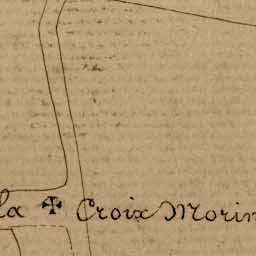 la ✠ Croix Morin